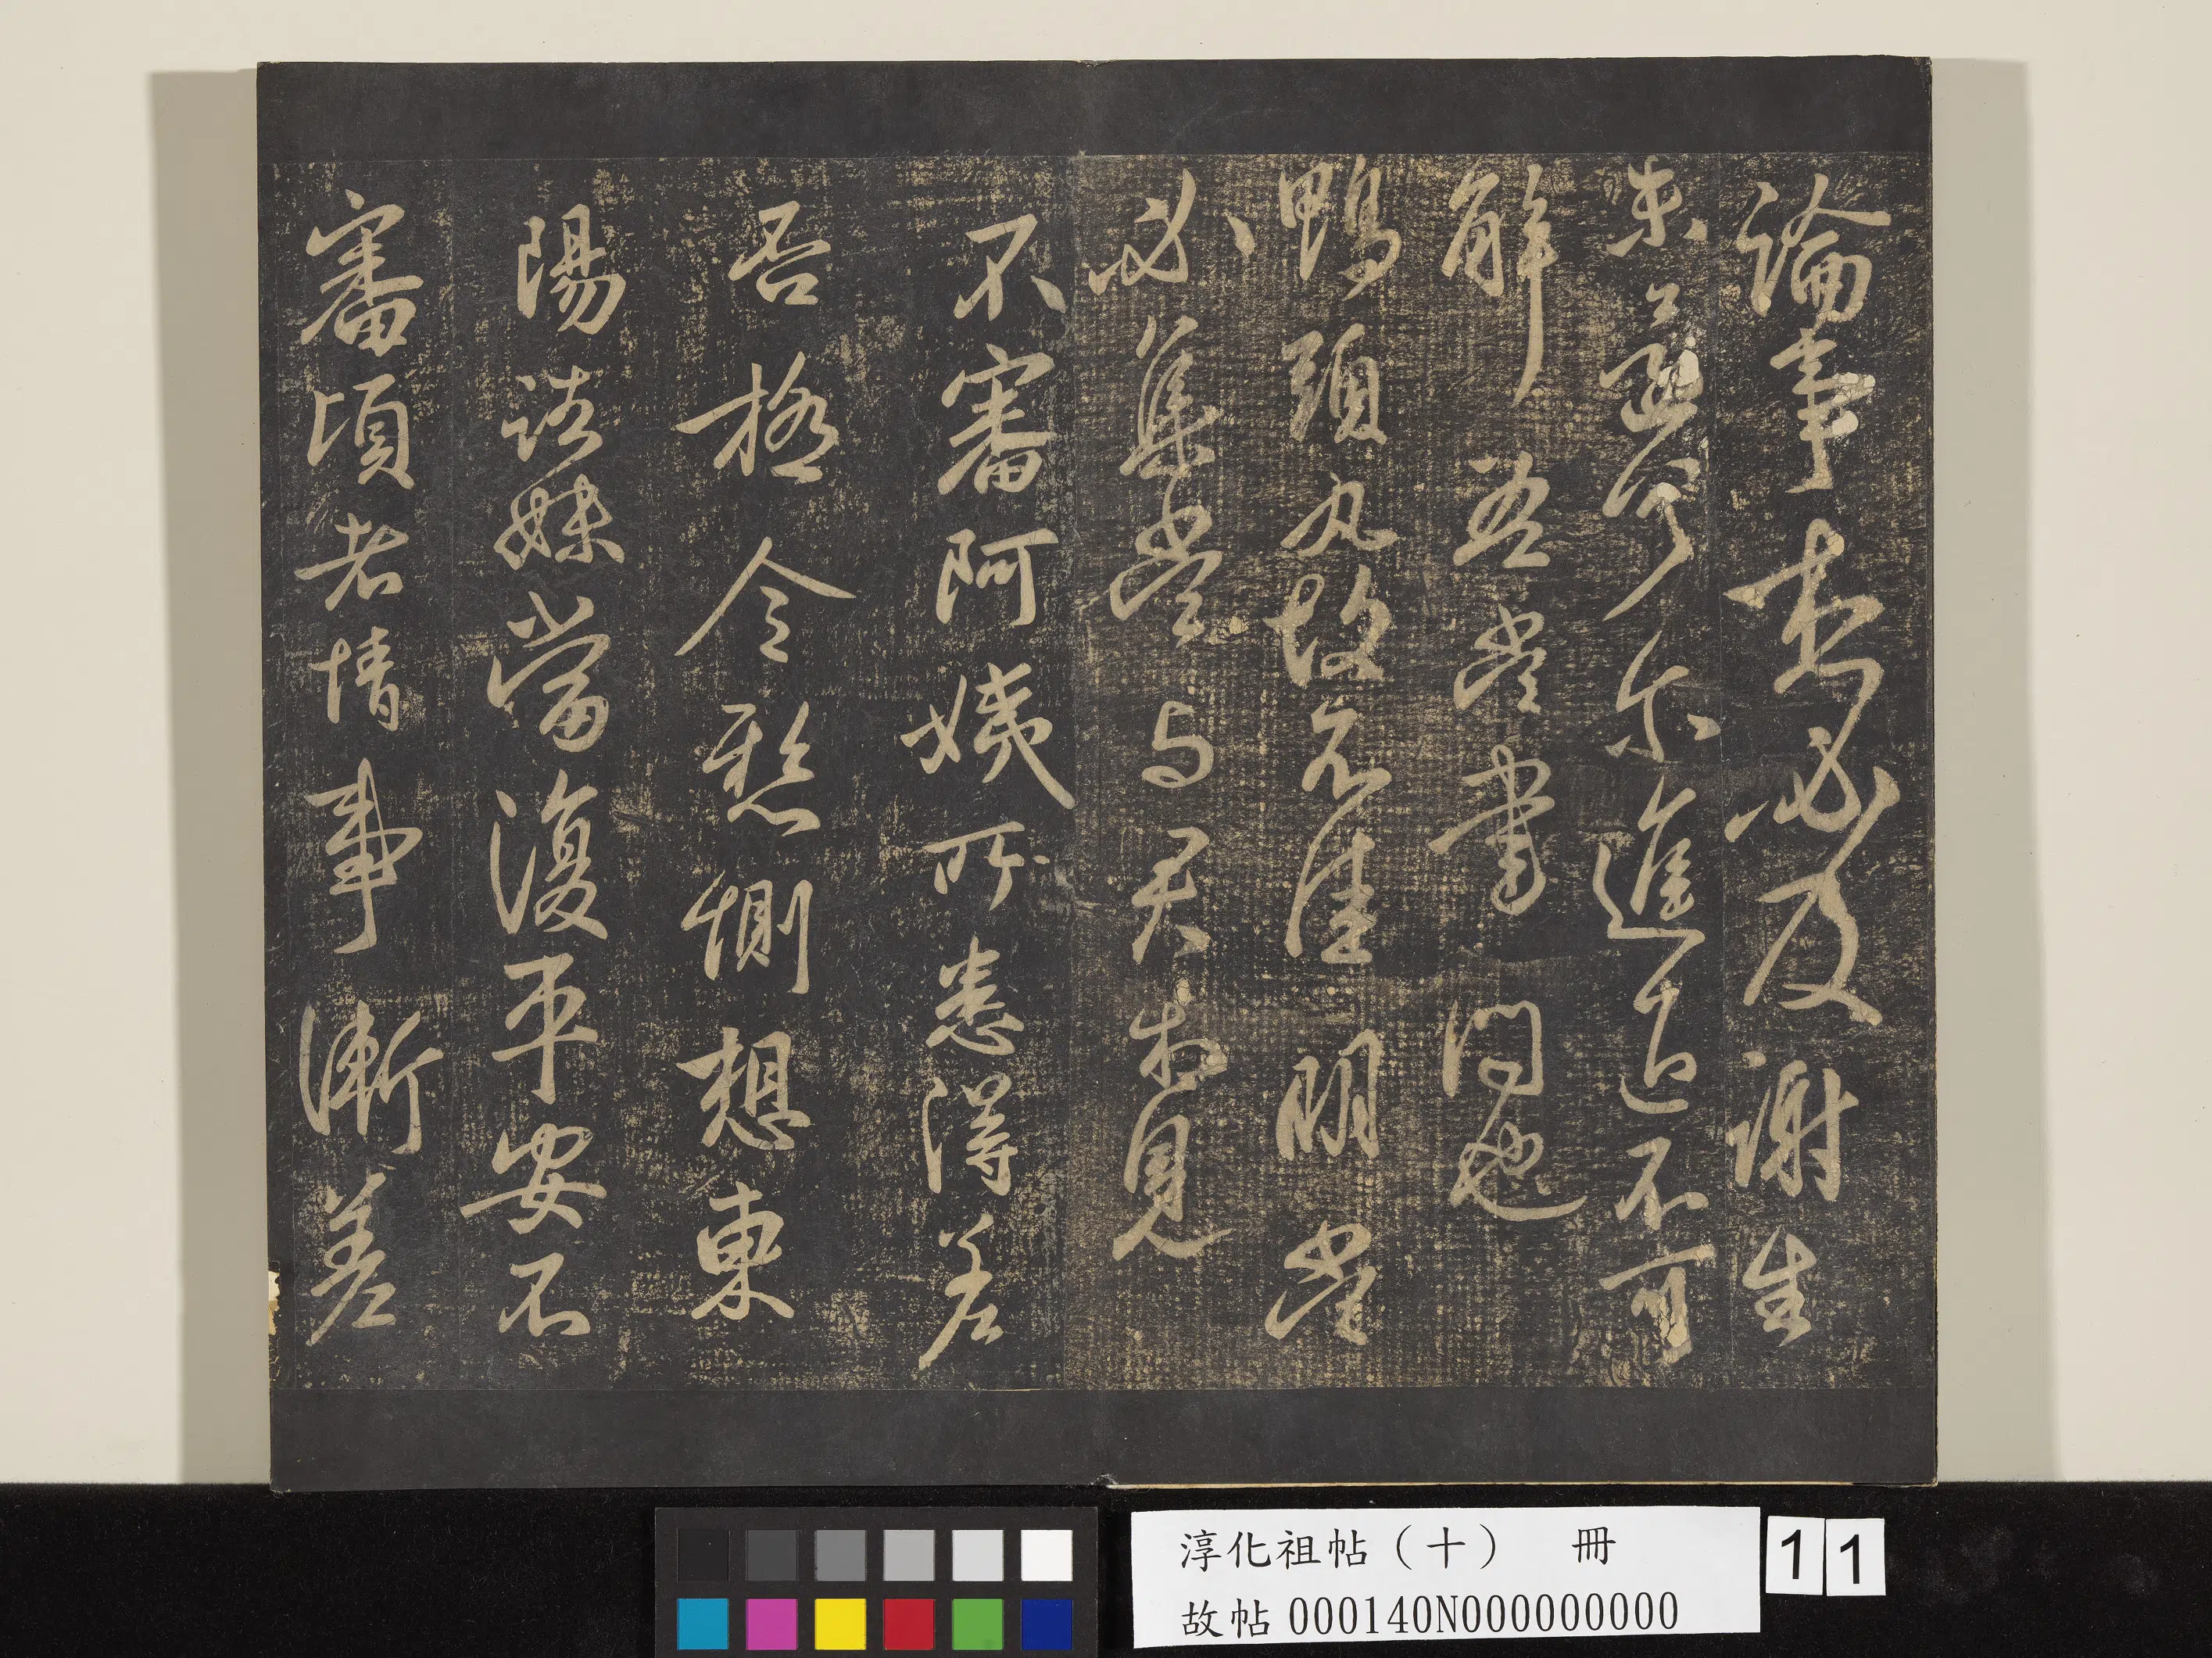 論事想必及謝生
未還何尔進退不可
解吾當書問也
鴨頭丸故不佳明當
必集當與君相見
不審阿姨所患得差
否極令懸惻想東
陽諸妹當復平安不
審頃者情事漸差
淳化祖帖（十） 冊
故帖000140N000000000
11